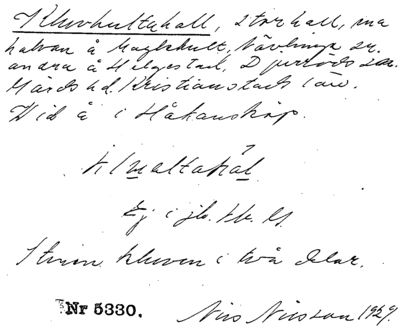 Kluvhultahall, stor hall, ena
halvan å Maglehult, Nävlinge sn.
andra å Helgestad, Djurröds sn.
Gärds hd. Kristianstads län.
Vid å i Håkansköp.
Ej i jb.
Stenen kluven i två delar.
Nr 5330. Nils Nilsson 1929.